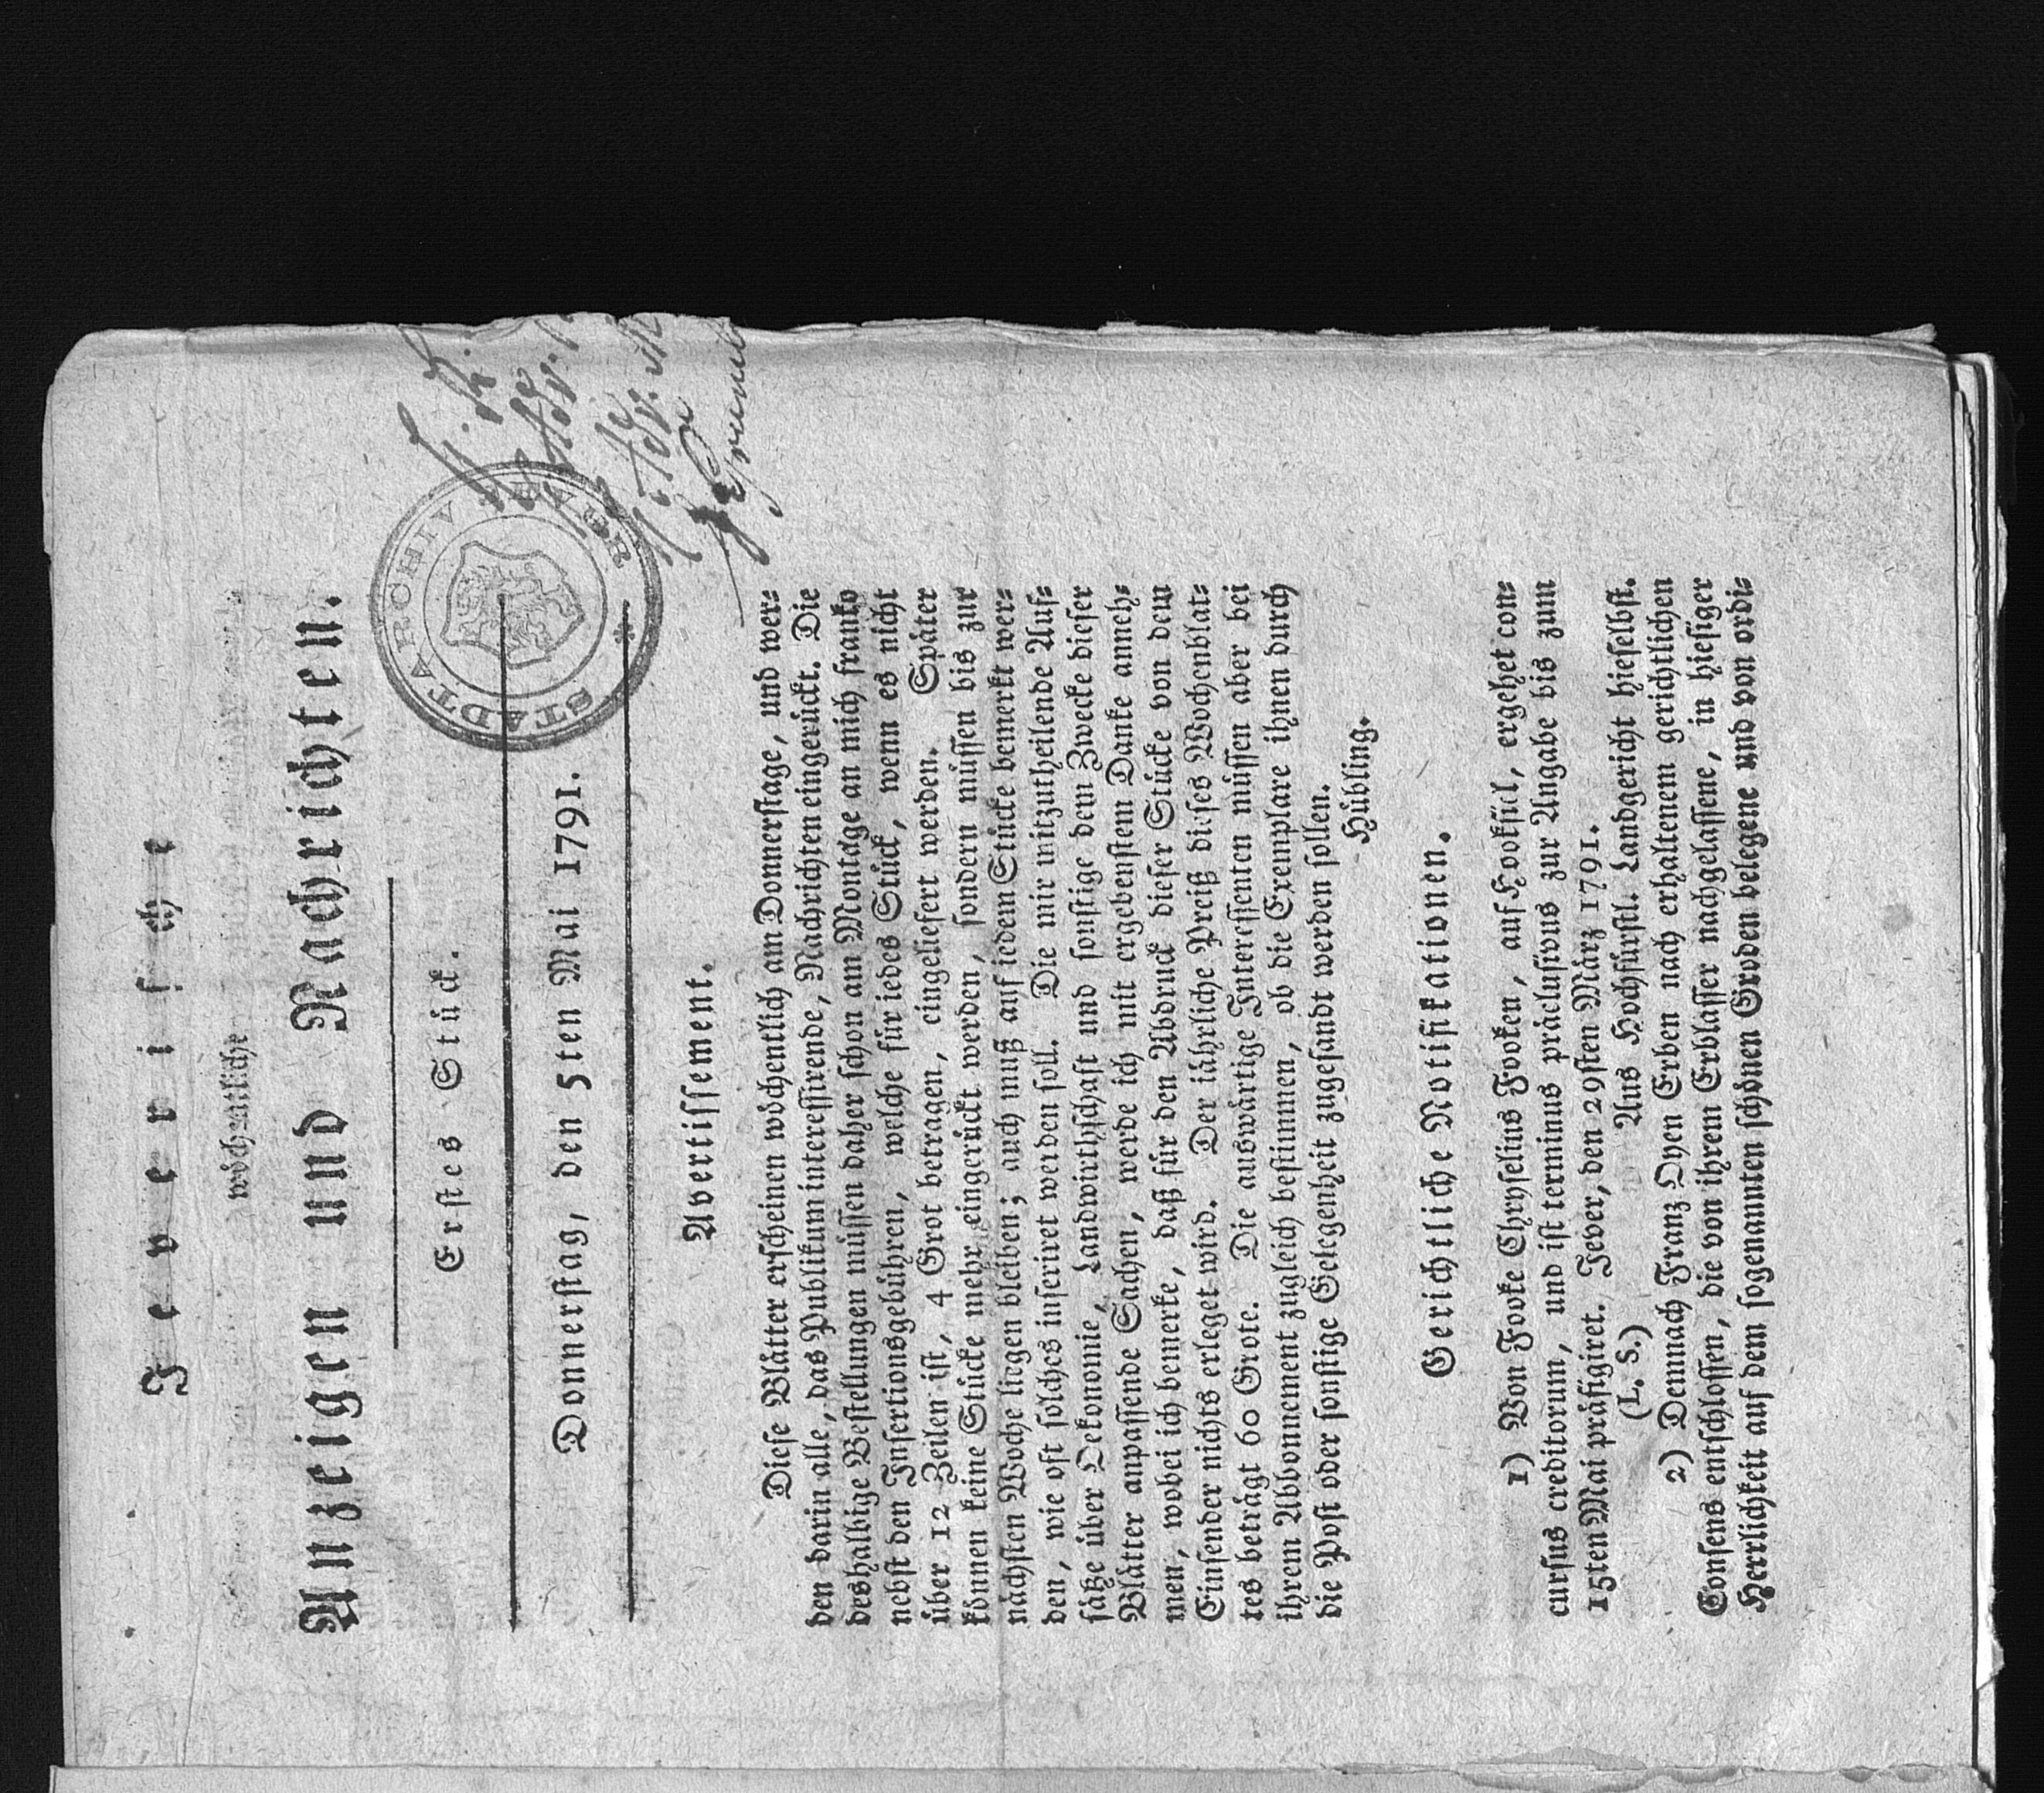 Jeverische
wöchentliche
Anzeigen und Nachrichten.
Erstes Stück.
Donnerstag, den 5ten Mai 1791.
STADTARCHIV
Avertissement.
Diese Blätter erscheinen wöchentlich am Donnerstage, und wer-
den darin alle, das Publikum interessirende, Nachrichten eingerückt. Die
deshalbige Bestellungen müssen daher schon am Montage an mich franko
nebst den Insertionsgebühren, welche für iedes Stück, wenn es nicht
über 12 Zeilen ist, 4 Grot betragen, eingeliefert werden. Später
können keine Stücke mehr eingerückt werden, sondern müssen bis zur
nächsten Woche liegen bleiben; auch muß auf iedem Stücke bemerkt wer-
den, wie oft solches inseriret werden soll. Die mir mitzutheilende Auf-
sätze über Oekonomie, Landwirthschaft und sonstige dem Zwecke dieser
Blätter anpassende Sachen, werde ich mit ergebenstem Danke anneh-
men, wobei ich bemerke, daß für den Abdruck dieser Stücke von dem
Einsender nichts erleget wird. Der iährliche Preiß dieses Wochenblat-
tes beträgt 60 Grote. Die auswärtige Interessenten müssen aber bei
ihrem Abbonnement zugleich bestimmen, ob die Exemplare ihnen durch
die Post oder sonstige Gelegenheit zugesandt werden sollen.
Hübling.
Gerichtliche Notifikationen.
1) Von Fooke Chryselius Fooken, auf Hooksiel, ergehet con-
cursus creditorum, und ist terminus präclusivus zur Angabe bis zum
15ten Mai präfigiret. Jever, den 29sten März 1791.
(L. S.) Aus Hochfürstl. Landgericht hieselbst.
2) Demnach Franz Oyen Erben nach erhaltenem gerichtlichen
Consens entschlossen, die von ihrem Erblasser nachgelassene, in hiesiger
Herrlichkeit auf dem sogenannten schönen Groden belegene und von ordi-